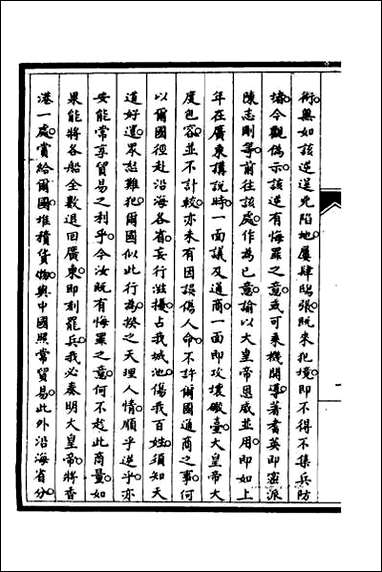 術無如該逆逆兇陷地屢肆鴟張既來犯境即不得不集兵防
堵今觀偽示該逆有悔罪之意或可乘機開導著耆英即密派
陳志剛等前往該處作為己意諭以大皇帝恩威並用即如上
年在廣東撫說時一面議及通商一面即攻壞礮臺大皇帝大
度包容並不計較亦未有因誤傷人命不許爾國通商之事何
以爾國徑赴沿海各省妄行滋擾占我城池傷我百姓須知天
道好還眾怒難犯爾國似此行為揆之天理人情順乎逆乎亦
安能常享貿易之利乎今汝既有悔罪之意何不趁此商量如
果能將各船全數退回廣東即刻罷兵我必奏明大皇帝將香
港一處賞給爾國堆積貨物與中國照常貿易此外沿海省分